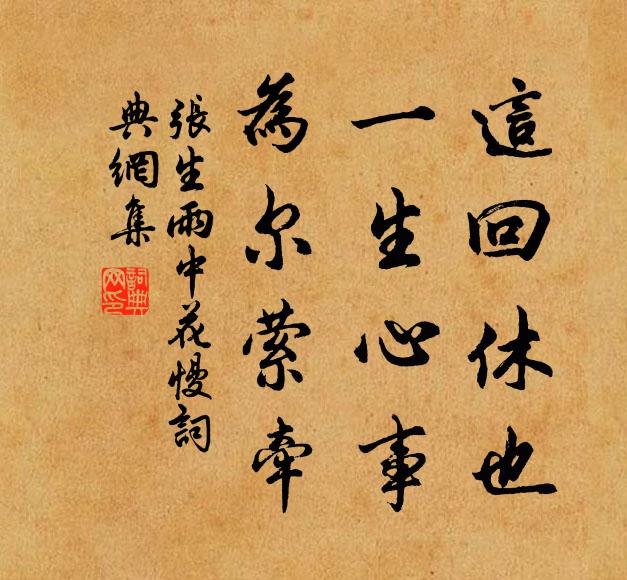 這回休也
一生心事
為尔萦牽
張生雨中花慢詞
典網集
詞典網印